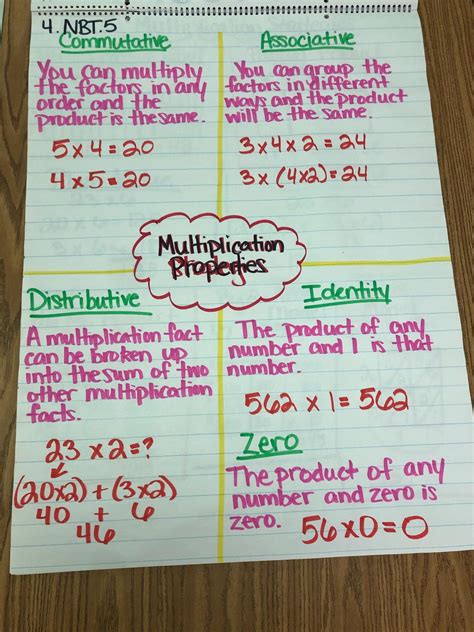 4. NBT.5
Commutative
You can multiply
the factors in any
order and the
product is the same.
5 x 4 = 20
4 x 5 = 20
Associative
You can group the
factors in different
ways and the product
will be the same.
3 x 4 x 2 = 24
3 x (4x2) = 24
Multiplication
Properties
Distributive
A multiplication fact
can be broken up
into the sum of two
other multiplication
facts.
23 x 2 = ?
(20x2) + (3x2)
40 + 6
46
Identity
The product of any
number and 1 is that
number.
562 x 1 = 562
Zero
The product of any
number and zero is
zero. 56 x 0 = 0